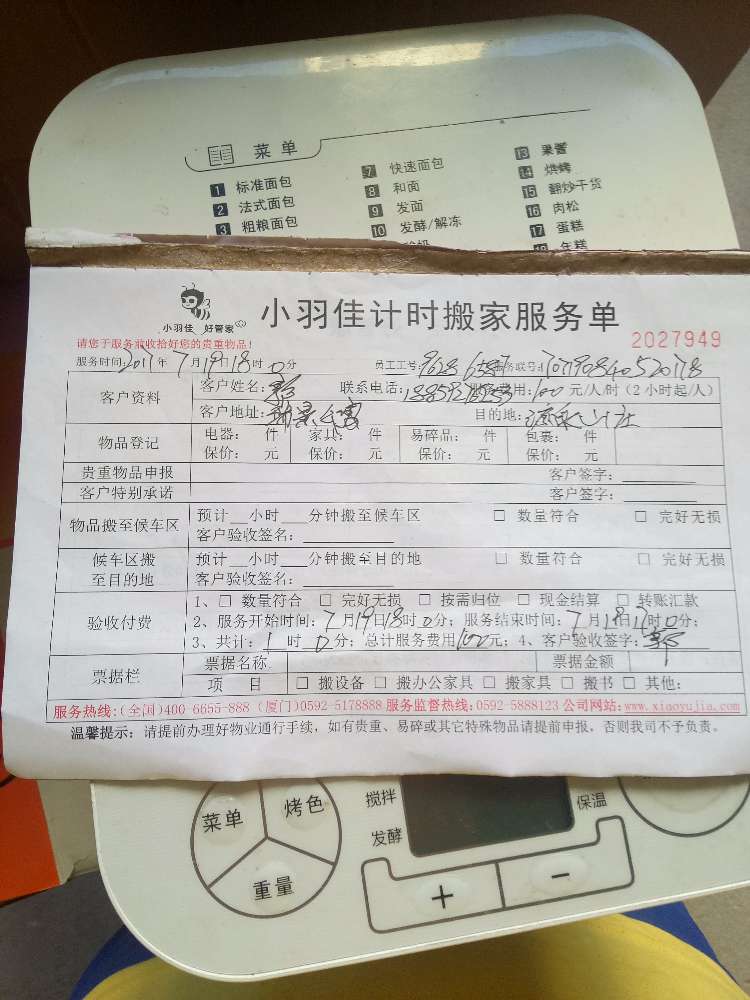 菜单
1 标准面包
2 法式面包
3 粗粮面包
7 快速面包
8 和面
9 发面
10 发酵/解冻
13 果酱
14 烘烤
15 翻炒干货
16 肉松
17 蛋糕
18 年糕
小羽佳 好管家
小羽佳计时搬家服务单
2027949
请您于服务前收拾好您的贵重物品!
服务时间:2017年7月19日18时0分 员工工号: 服务联号:
客户资料
客户姓名:郭 联系电话: 服务费用:100元/人/时(2小时起/人)
客户地址: 目的地:
物品登记
电器: 件 家具: 件 易碎品: 件 包裹: 件
保价: 元 保价: 元 保价: 元 保价: 元
贵重物品申报 客户签字:
客户特别承诺 客户签字:
物品搬至候车区
预计__小时___分钟搬至候车区 □ 数量符合 □ 完好无损
客户验收签名:
候车区搬至目的地
预计__小时___分钟搬至目的地 □ 数量符合 □ 完好无损
客户验收签名:
验收付费
1、□ 数量符合 □ 完好无损 □ 按需归位 □ 现金结算 □ 转账汇款
2、服务开始时间:7月19日18时0分;服务结束时间:7月19日19时0分;
3、共计:1时0分;总计服务费用100元;4、客户验收签字:郭
票据栏
票据名称 票据金额
项 目 □ 搬设备 □ 搬办公家具 □ 搬家具 □ 搬书 □ 其他:
服务热线:(全国)400-6655-888 (厦门)0592-5178888 服务监督热线:0592-5888123 公司网站:www.xiaoyujia.com
温馨提示:请提前办理好物业通行手续,如有贵重、易碎或其它特殊物品请提前申报,否则我司不予负责。
菜单
烤色
重量
搅拌
发酵
保温
+
−